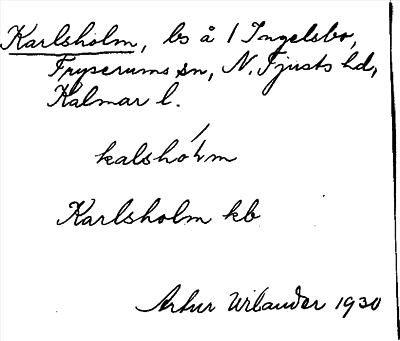 Karlsholm, ls å 1 Ingelsbo,
Fryserums sn, N. Tjusts hd,
Kalmar l.
kalshoʹłm
Karlsholm kb
Artur Wilander 1930